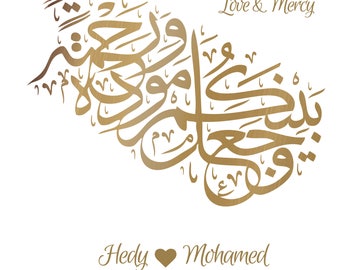 Love & Mercy
وجعل بينكم مودة ورحمة
Hedy Mohamed